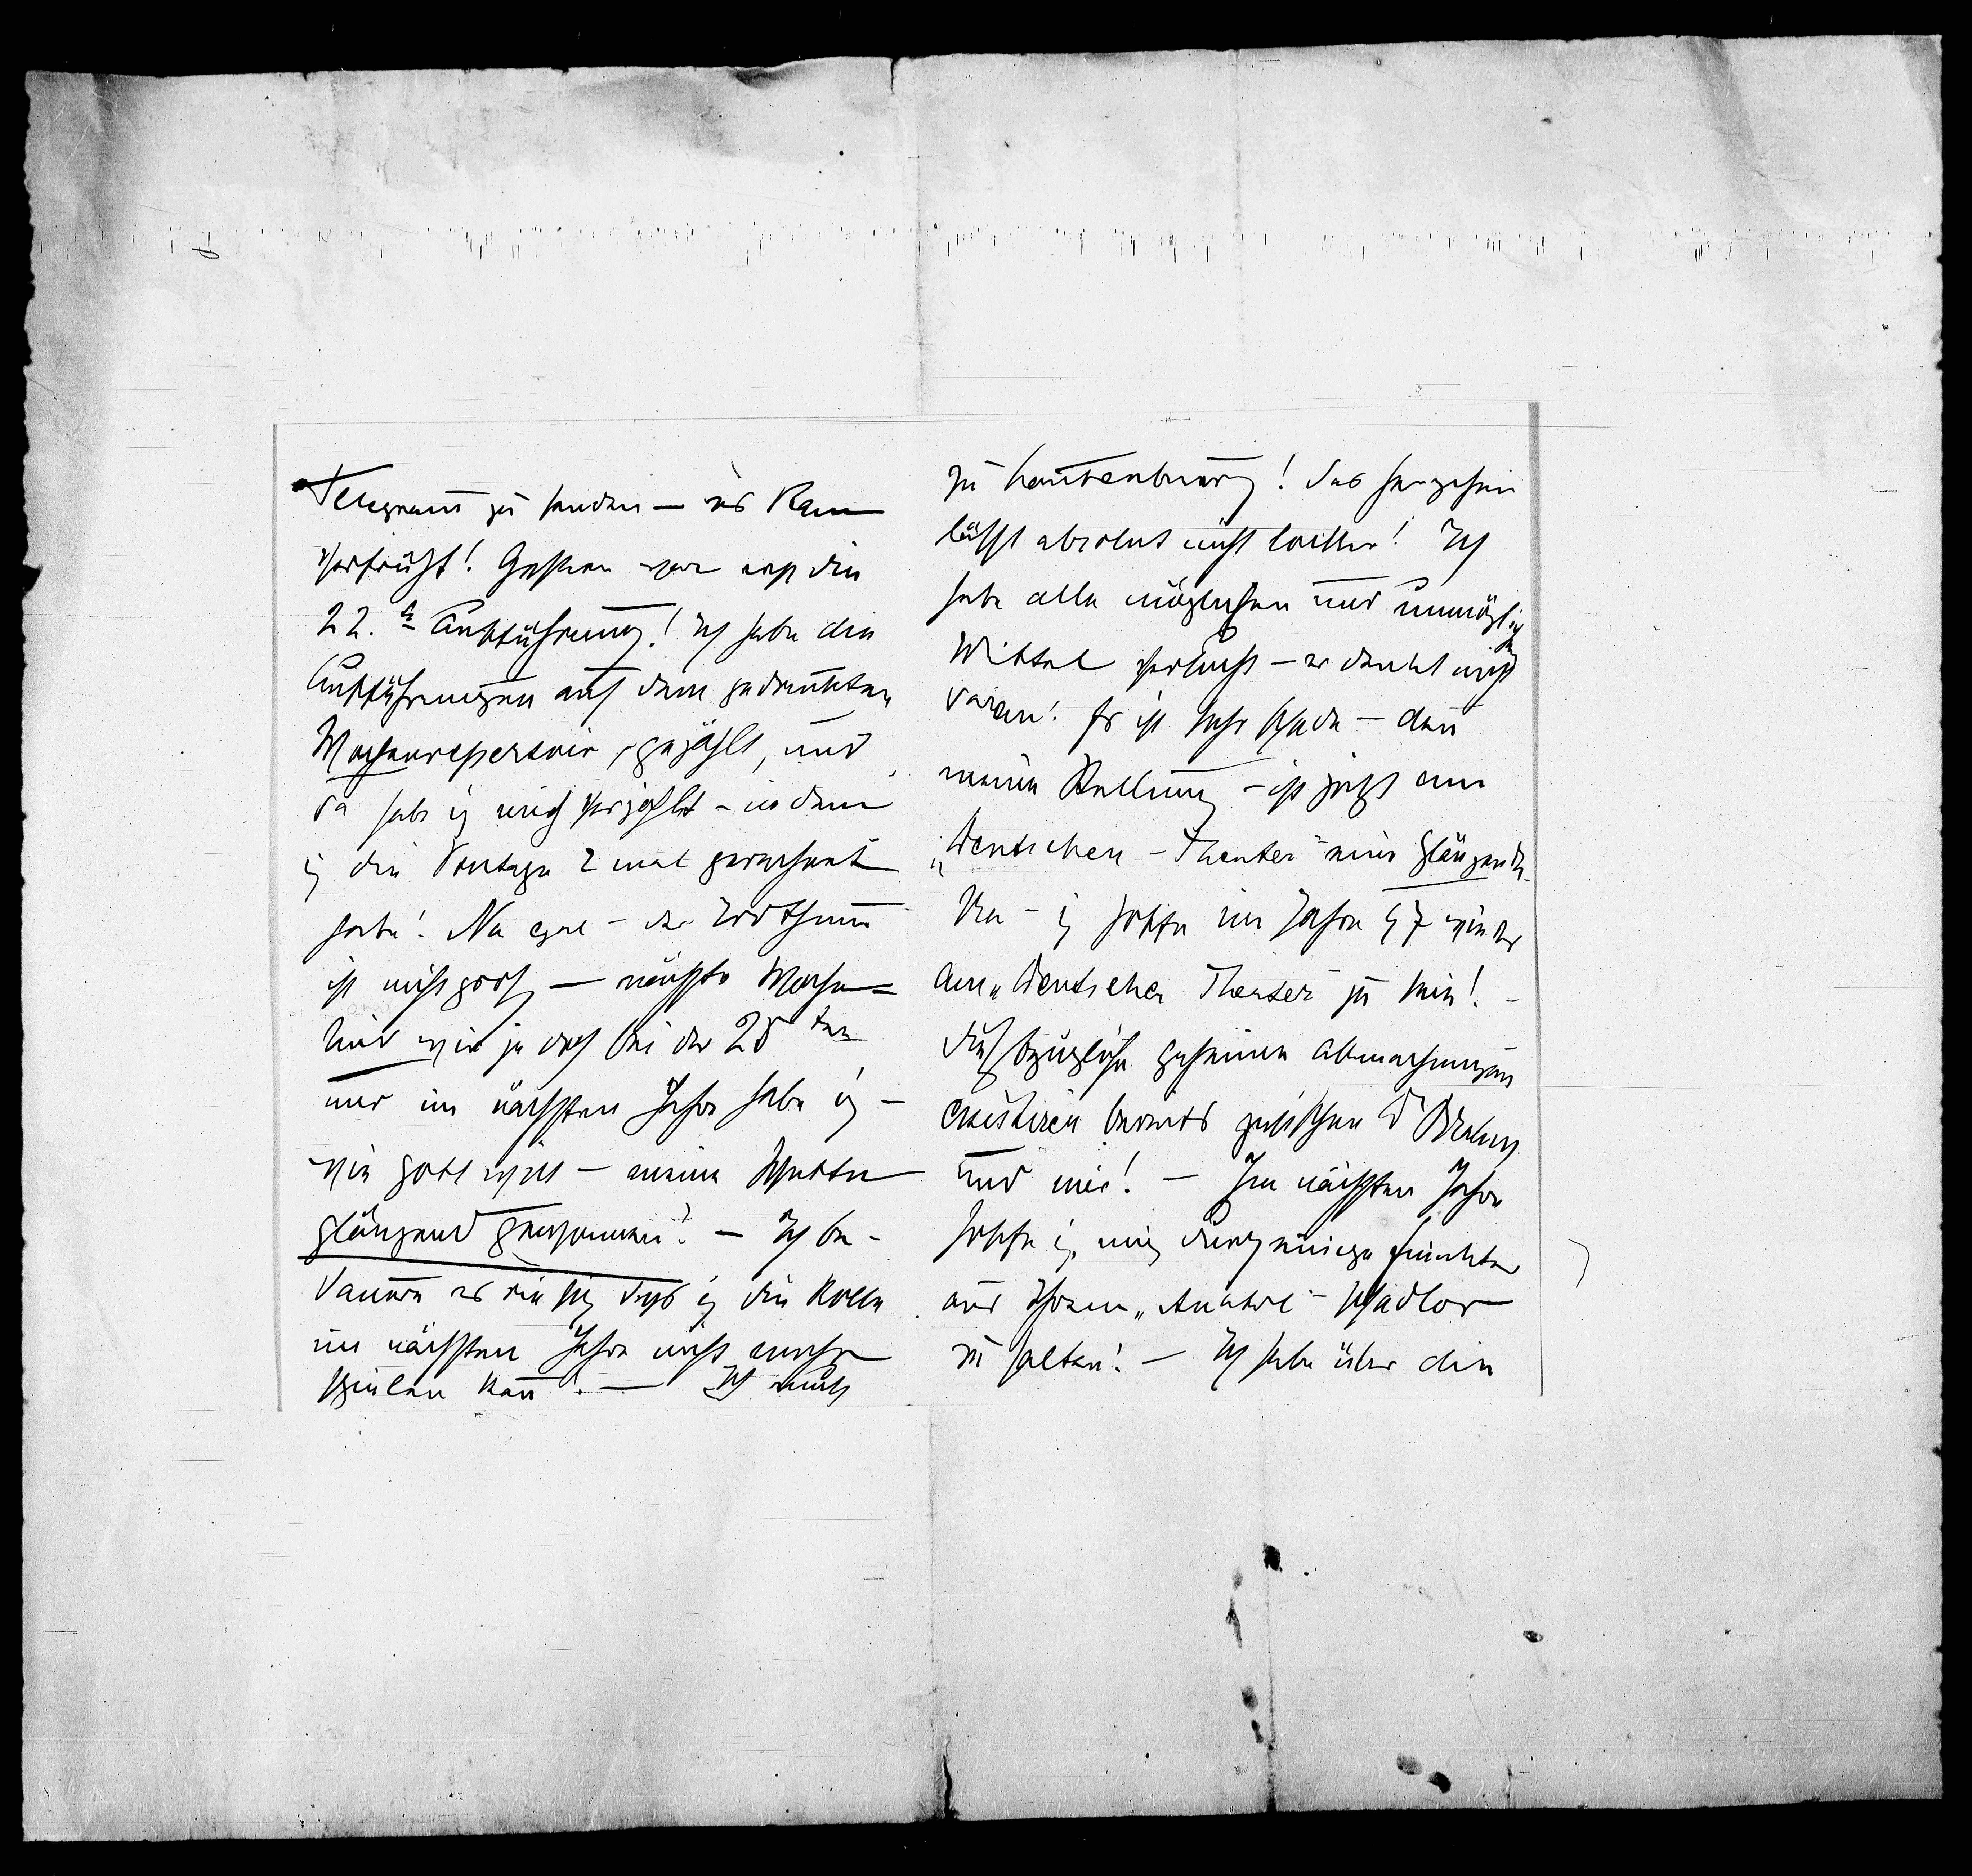 Telegramm zu senden — es kam
verfrüht! Gestern war erst die
22.te Aufführung! Ich habe die
Aufführungen auf dem gedruckten
Wochenrepertoir gezählt, und
da hab ich mich verzählt – indem
ich die Sontage 2 mal gerechnet
habe! Na egal – der Irrthum
ist nicht groß — nächste Woche
sind wir ja doch bei der 25ten
und im nächsten Jahre habe ich –
wie Gott will – meine Wette
glänzend gewonnen! – Ich be-
dauere es riesig daß ich die Rolle
im nächsten Jahre nicht mehr
spielen kann! — Ich muß
zu Lautenburg! Das Hergehen
läßt absolut nicht locker! Ich
habe alle möglichen und unmöglichen
Mittel versucht – er denkt nicht
daran! Es ist sehr schade – denn
meine Stellung – ist jetzt am
„Deutschen – Theater" eine glänzende.
Na – ich hoffe im Jahre 97 wieder
am „Deutschen Theater" zu sein! –
Diesbezügliche geheime Abmachungen
existiren bereits zwischen Dr Brahm
und mir! – Im nächsten Jahre
hoffe ich, mich durch einige Einakter
aus Ihrem „Anatol" – schadlos
zu halten! – Ich habe über die